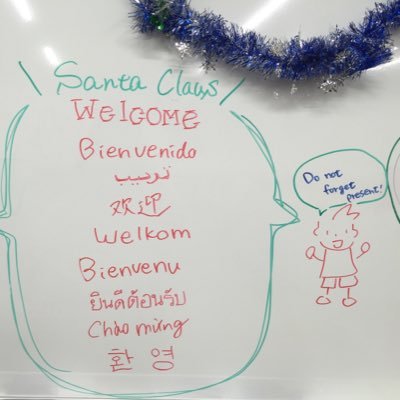 Santa Claus
Welcome
Bienvenido
ترحيب
欢迎
Welkom
Bienvenu
ยินดีต้อนรับ
Chào mừng
환영
Do not
forget
present!